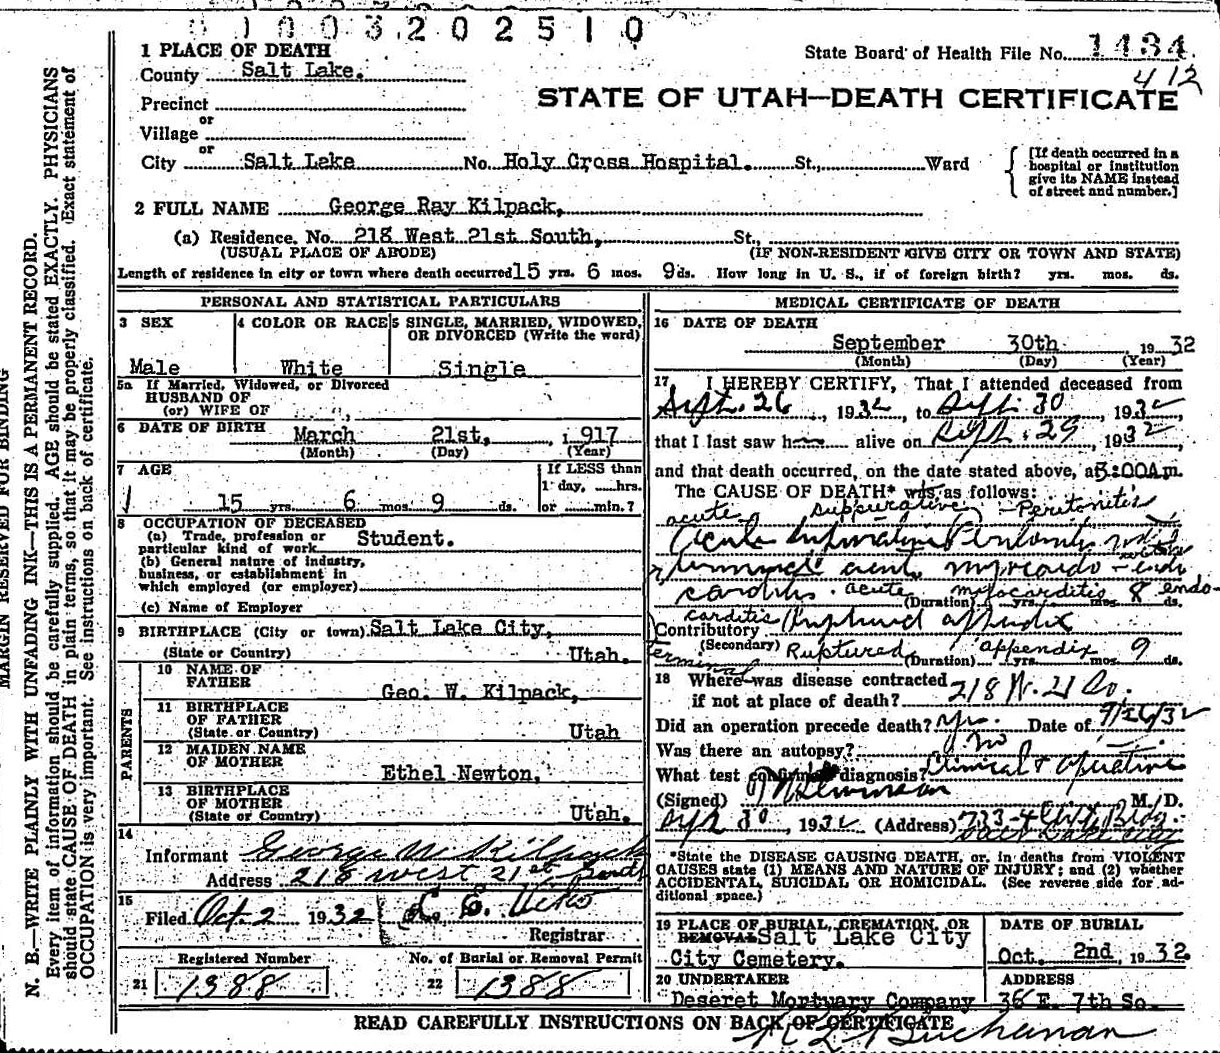 0 1 0 0 3 2 0 2 5 1 0
1 PLACE OF DEATH
State Board of Health File No. 1434
County Salt Lake.
412
Precinct
STATE OF UTAH—DEATH CERTIFICATE
or
Village
or
City Salt Lake No. Holy Cross Hospital. St., Ward
[If death occurred in a
hospital or institution
give its NAME instead
of street and number.]
2 FULL NAME George Ray Kilpack,
(a) Residence, No. 218 West 21st South, St.,
(USUAL PLACE OF ABODE) (IF NON-RESIDENT GIVE CITY OR TOWN AND STATE)
Length of residence in city or town where death occurred 15 yrs. 6 mos. 9 ds. How long in U. S., if of foreign birth? yrs. mos. ds.
PERSONAL AND STATISTICAL PARTICULARS
3 SEX
Male
4 COLOR OR RACE
White
5 SINGLE, MARRIED, WIDOWED,
OR DIVORCED (Write the word)
Single
5a If Married, Widowed, or Divorced
HUSBAND OF
(or) WIFE OF
6 DATE OF BIRTH March 21st, , 1917
(Month) (Day) (Year)
7 AGE
15 yrs. 6 mos. 9 ds.
If LESS than
1 day, hrs.
or min.?
8 OCCUPATION OF DECEASED
(a) Trade, profession or
particular kind of work Student.
(b) General nature of industry,
business, or establishment in
which employed (or employer)
(c) Name of Employer
9 BIRTHPLACE (City or town) Salt Lake City,
(State or Country) Utah.
PARENTS
10 NAME OF
FATHER
Geo. W. Kilpack,
11 BIRTHPLACE
OF FATHER
(State or Country) Utah
12 MAIDEN NAME
OF MOTHER
Ethel Newton,
13 BIRTHPLACE
OF MOTHER
(State or Country) Utah.
14
Informant George W Kilpack
Address 218 West 21st South
15
Filed Oct 2 1932
Registrar
Registered Number No. of Burial or Removal Permit
21 1388 22 1388
MEDICAL CERTIFICATE OF DEATH
16 DATE OF DEATH
September 30th 1932
(Month) (Day) (Year)
17 I HEREBY CERTIFY, That I attended deceased from
Sept. 26, 1932, to Sept. 30, 1932,
that I last saw h alive on Sept. 29, 1932
and that death occurred, on the date stated above, at 5:00A m.
The CAUSE OF DEATH* was as follows:
acute suppurative Peritonitis
Acute Suppurative Peritonitis with
terminal acute myocardo-endo
carditis. acute myocarditis endo-
(Duration) yrs. mos. 8 ds.
carditis
Contributory Ruptured appendix
(Secondary) Ruptured appendix
terminal (Duration) yrs. mos. 9 ds.
18 Where was disease contracted
if not at place of death? 218 W. 21 So.
Did an operation precede death? Yes. Date of 9/26/32
Was there an autopsy? no
What test confirmed diagnosis? Clinical & operative
(Signed) M. D.
Sept 30, 1932 (Address) 733-4 Bldg.
Salt Lake City
*State the DISEASE CAUSING DEATH, or, in deaths from VIOLENT
CAUSES state (1) MEANS AND NATURE OF INJURY; and (2) whether
ACCIDENTAL, SUICIDAL OR HOMICIDAL. (See reverse side for ad-
ditional space.)
19 PLACE OF BURIAL, CREMATION, OR
REMOVAL Salt Lake City
City Cemetery.
DATE OF BURIAL
Oct. 2nd, 1932.
20 UNDERTAKER
Deseret Mortuary Company
ADDRESS
36 E. 7th So.
READ CAREFULLY INSTRUCTIONS ON BACK OF CERTIFICATE
Buchanan
MARGIN RESERVED FOR BINDING
N. B.—WRITE PLAINLY WITH UNFADING INK—THIS IS A PERMANENT RECORD.
Every item of information should be carefully supplied. AGE should be stated EXACTLY. PHYSICIANS
should state CAUSE OF DEATH in plain terms, so that it may be properly classified. Exact statement of
OCCUPATION is very important. See instructions on back of certificate.